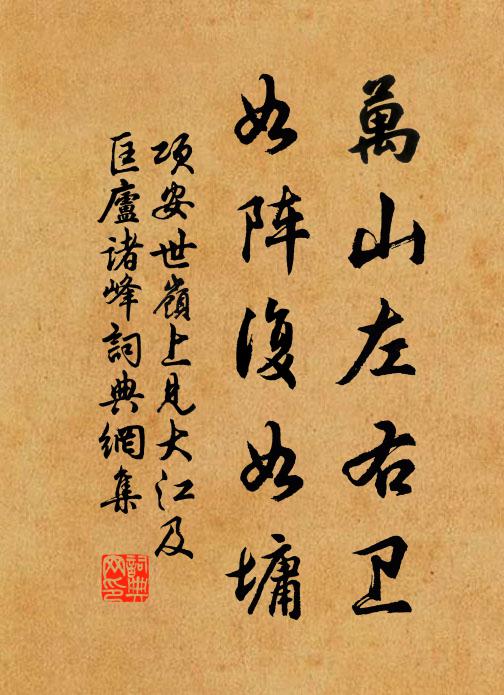 萬山左右卫
如阵復如墉
项安世嶺上見大江及
匡廬诸峰詞典網集
詞典
网印